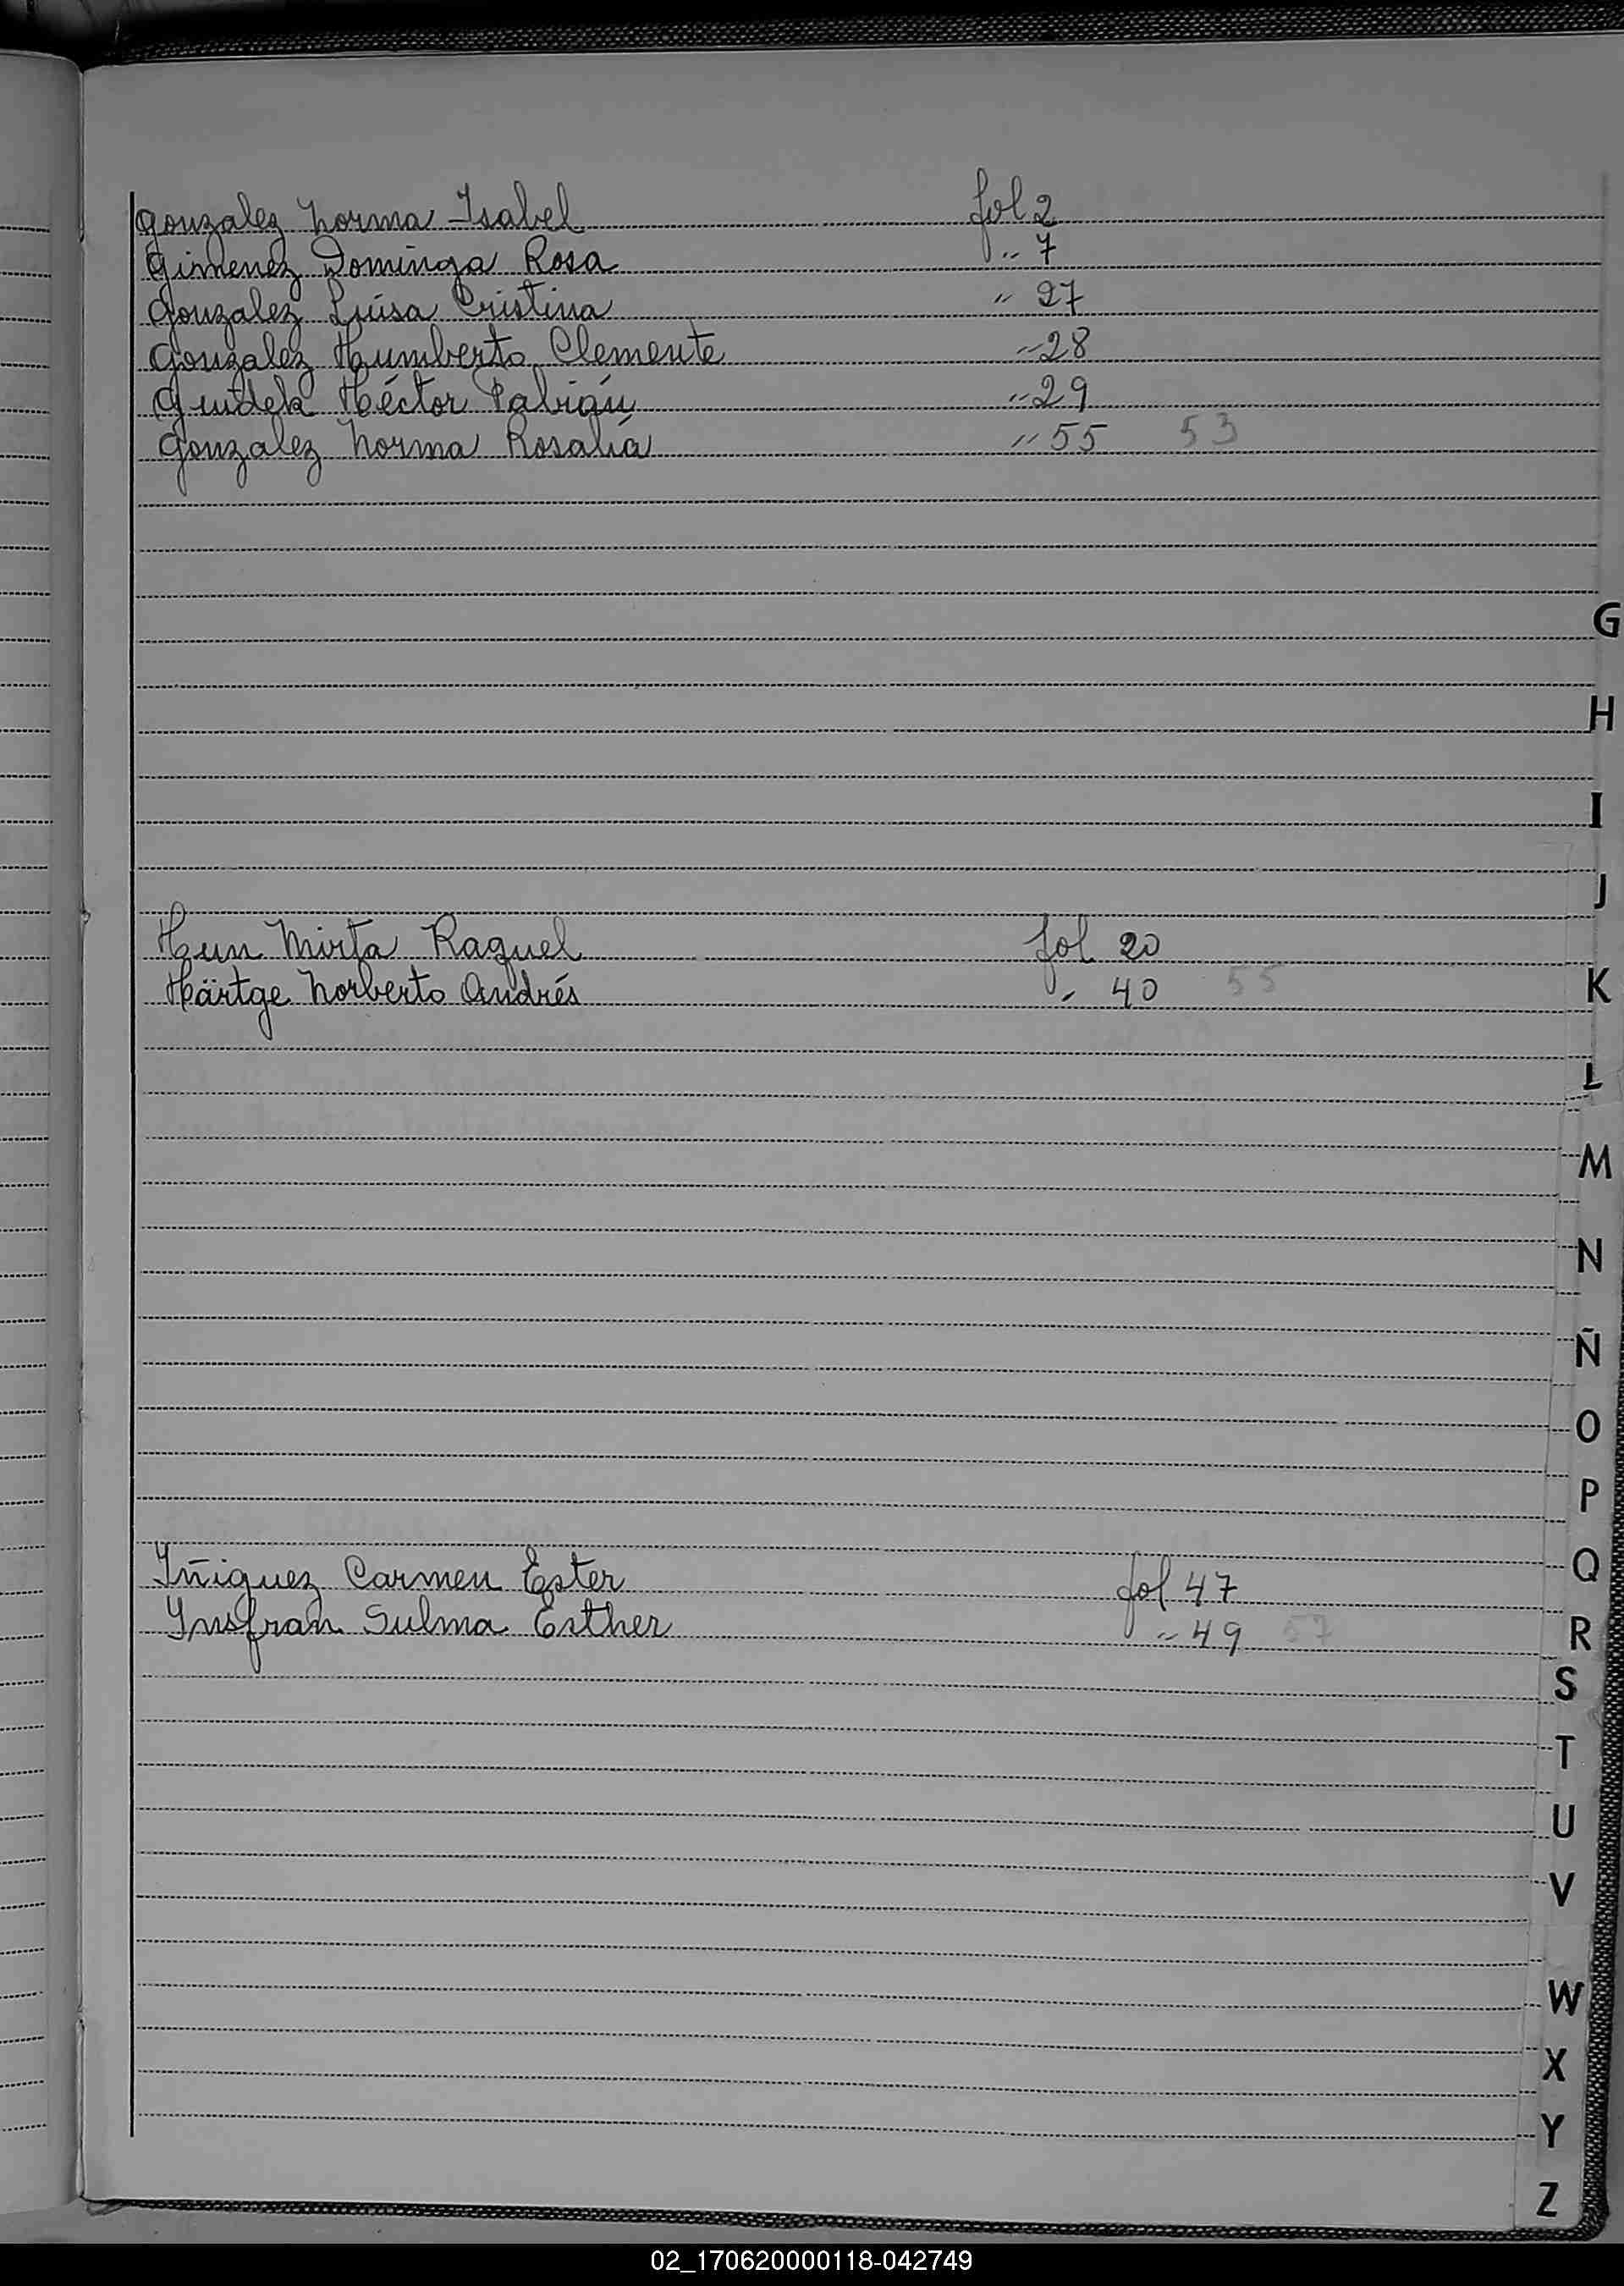 Gonzalez Norma Isabel fol 2
Gimenez Dominga Rosa " 7
Gonzalez Luisa Cristina " 27
Gonzalez Humberto Clemente " 28
Héctor Fabián " 29
Gonzalez Norma Rosalía " 55 53
G
H
I
J
Hun Mirta Raquel fol 20
Härtge Norberto Andrés " 40 55
K
L
M
N
Ñ
O
P
Q
Iñiguez Carmen Ester fol 47
Insfran Sulma Esther " 49 57
R
S
T
U
V
W
X
Y
Z
02_170620000118-042749